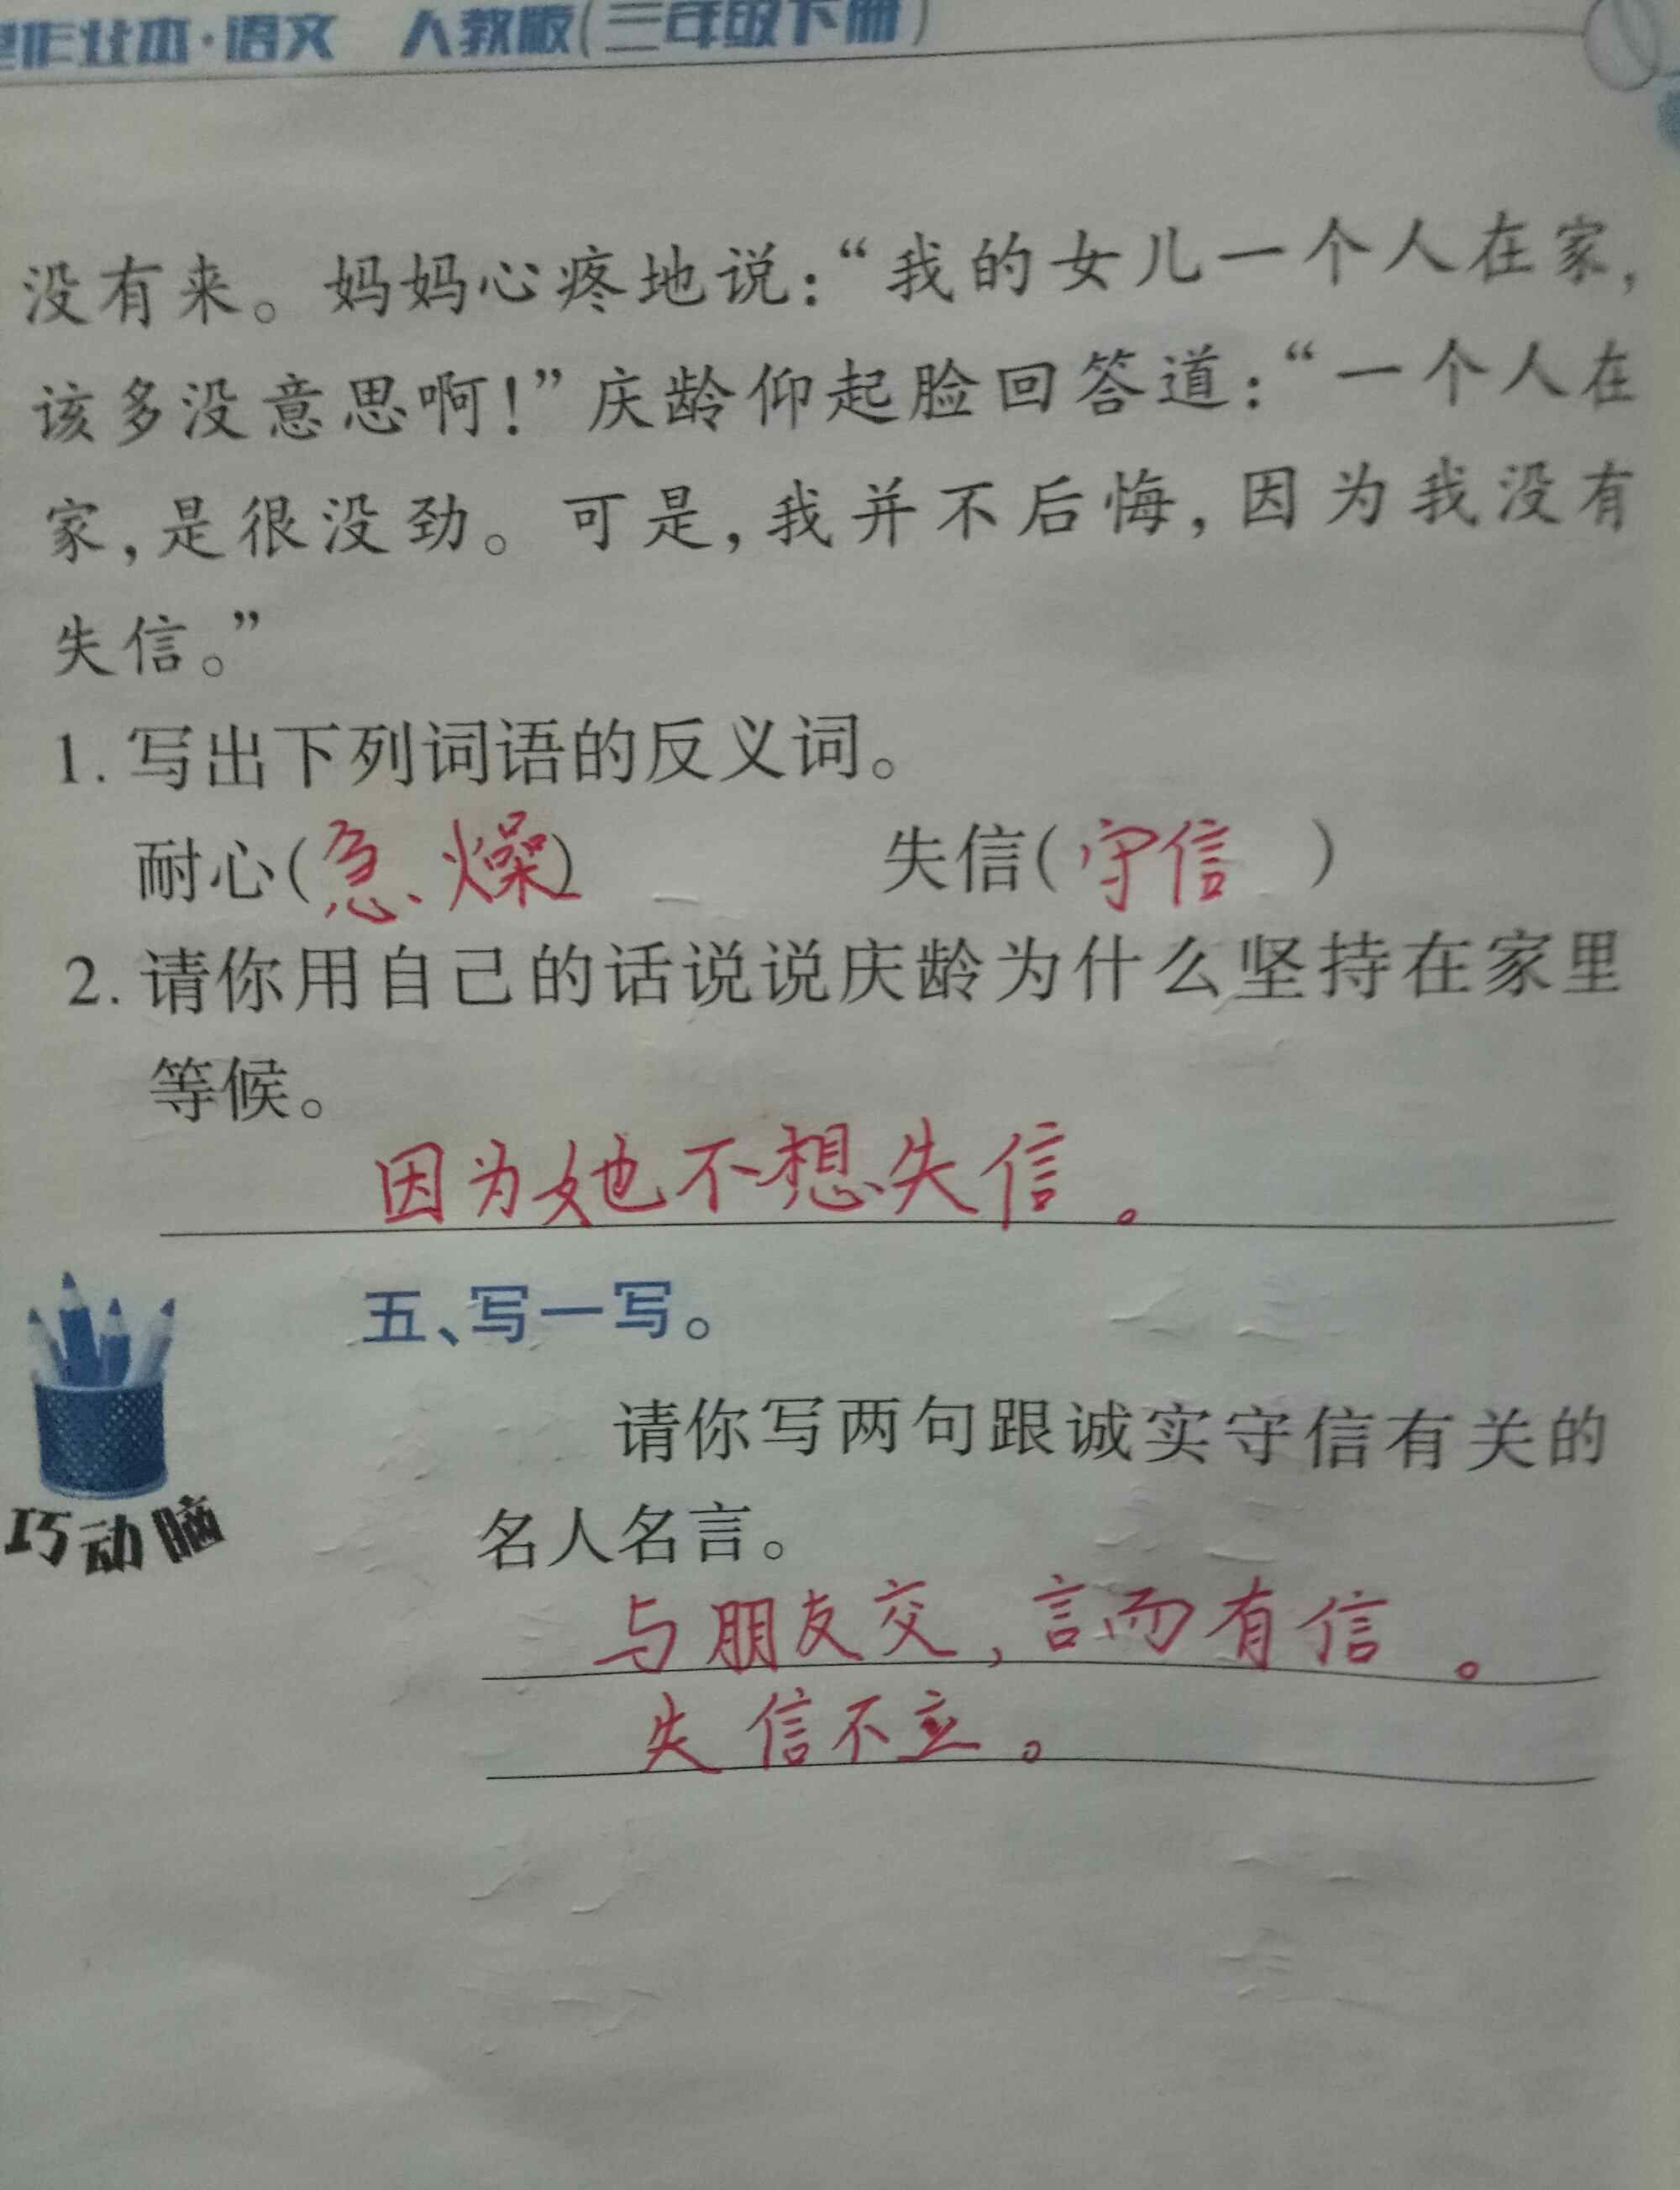 作业本·语文 人教版(三年级下册)
没有来。妈妈心疼地说：“我的女儿一个人在家，
该多没意思啊！”庆龄仰起脸回答道：“一个人在
家，是很没劲。可是，我并不后悔，因为我没有
失信。”
1. 写出下列词语的反义词。
耐心(急燥) 失信(守信)
2. 请你用自己的话说说庆龄为什么坚持在家里
等候。
因为她不想失信。
五、写一写。
巧动脑
请你写两句跟诚实守信有关的
名人名言。
与朋友交，言而有信。
失信不立。